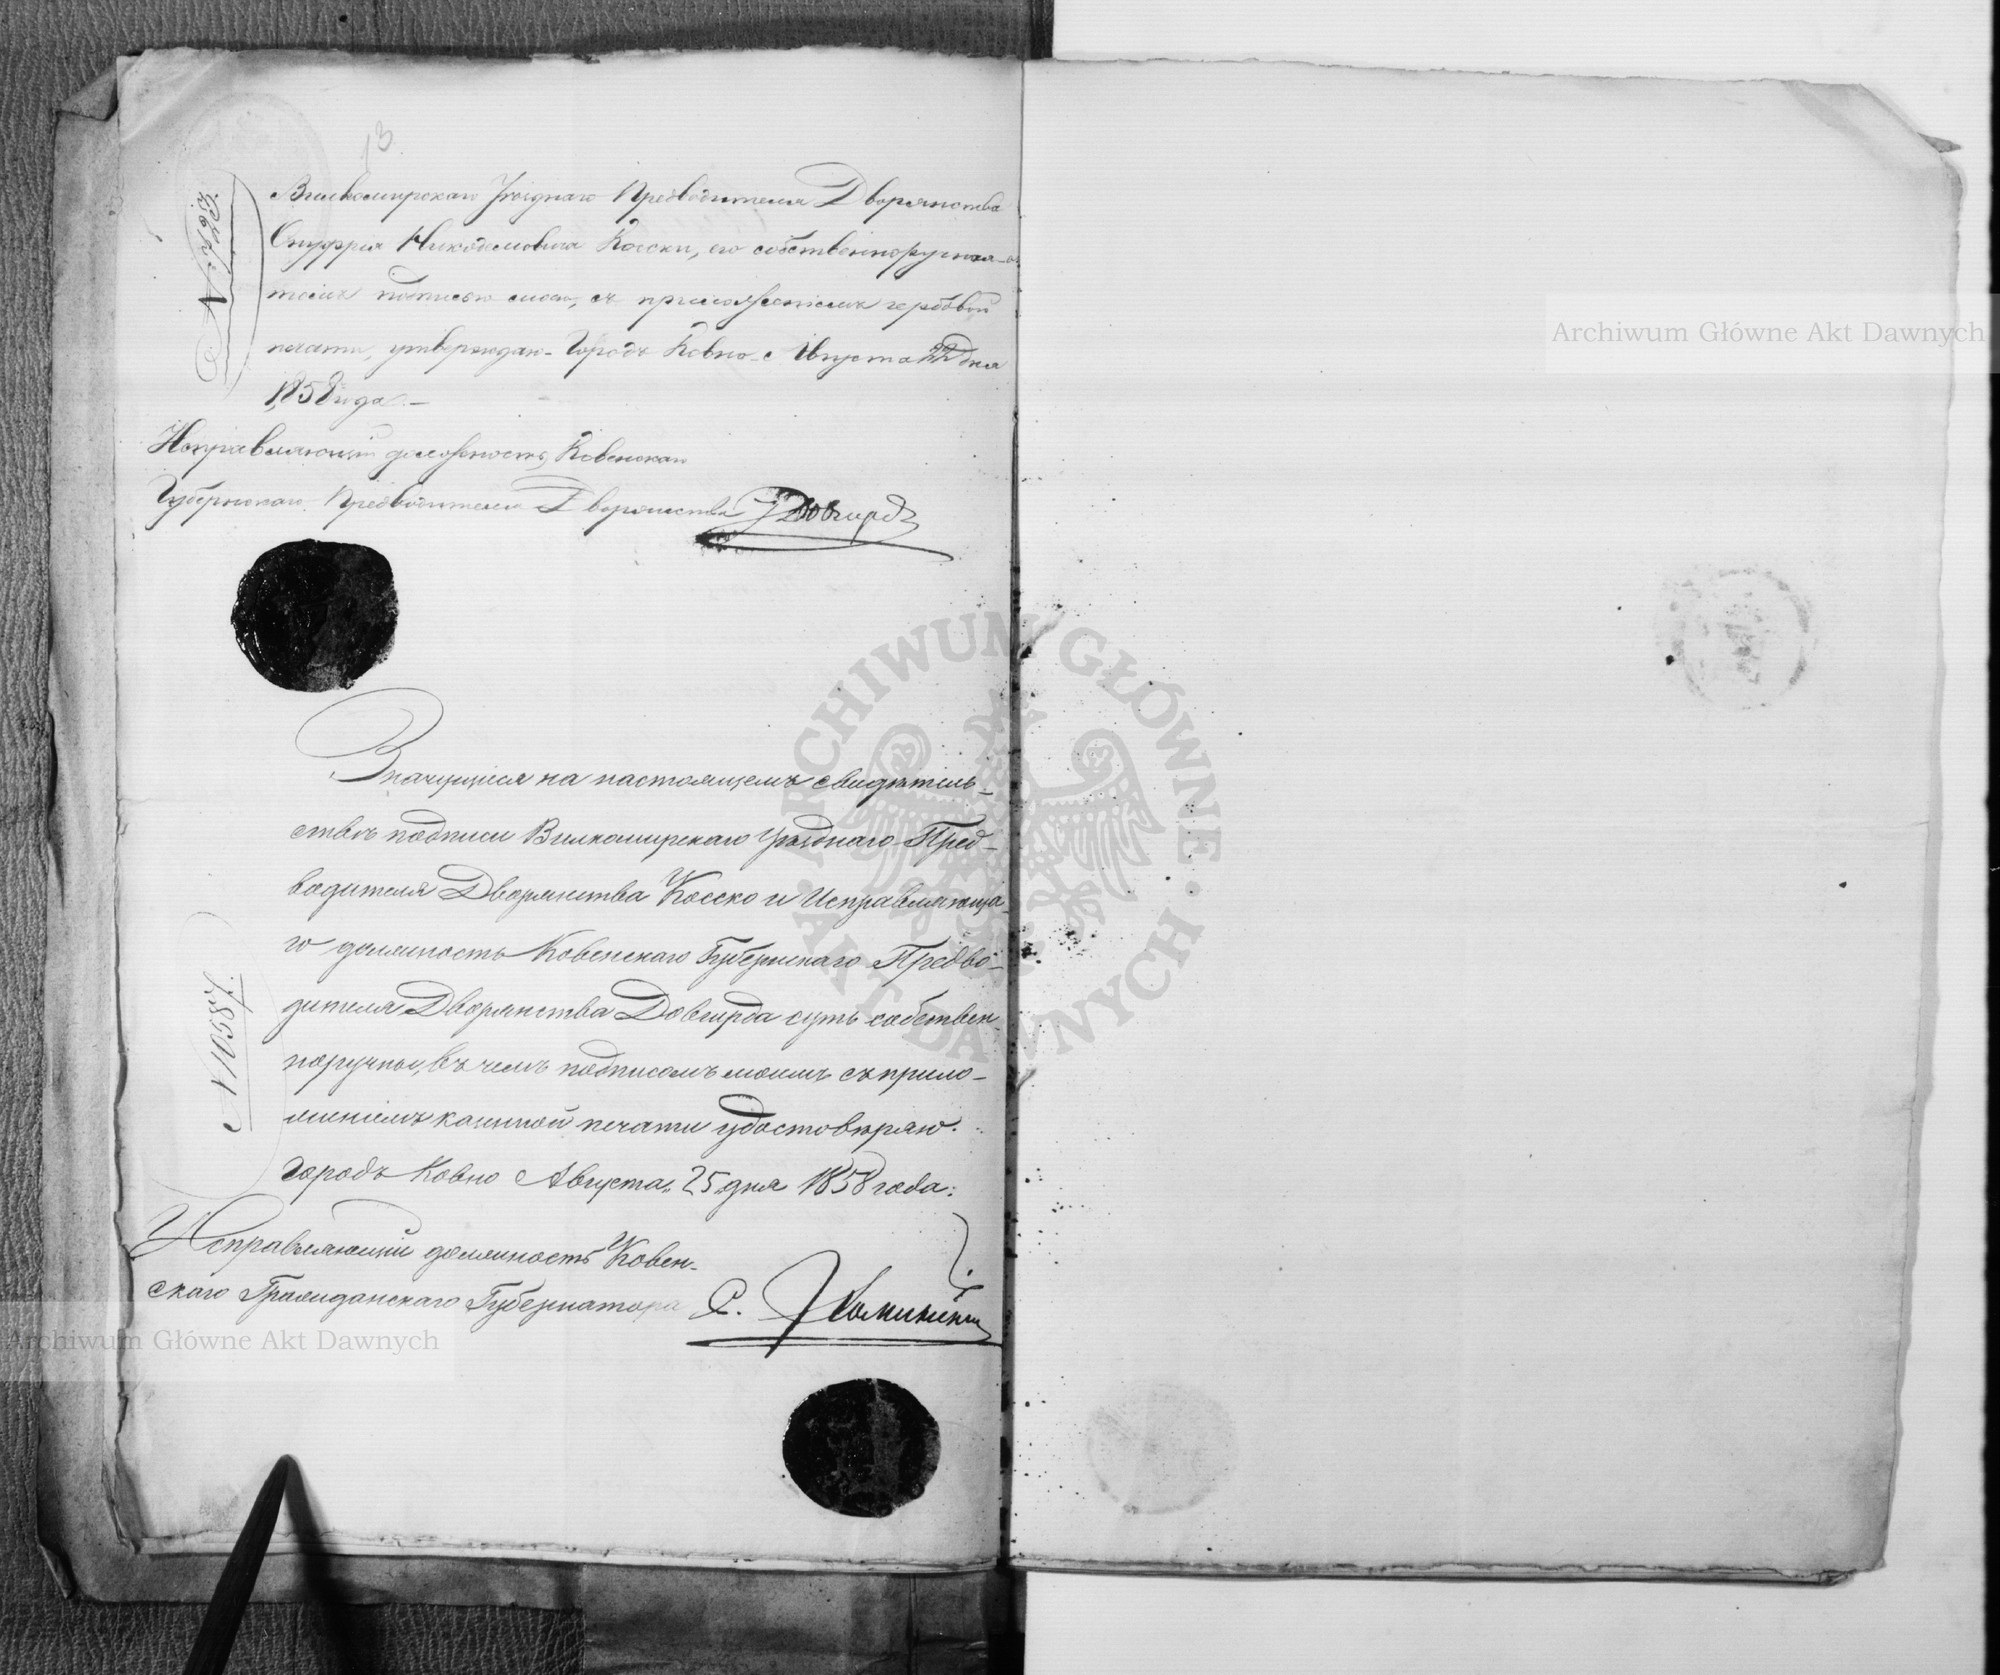 13
Вилкомирскаго Уѣзднаго Предводителя Дворянства
Онуфрія Никодимовича Косски, его собственноручная
подписью моею, съ приложеніемъ гербовой
печати, утверждаю. Городъ Ковно. Августа 22 дня
1858 года.
Исправляющій должность Ковенскаго
Губернскаго Предводителя Дворянства Довгирдъ
Значущіеся на настоящемъ свидѣтель-
ствѣ подписи Вилкомирскаго Уѣзднаго Пред-
водителя Дворянства Косско и Исправляюща-
го должность Ковенскаго Губернскаго Предво-
дителя Дворянства Довгирда суть собствен-
норучныя, въ чемъ подписомъ моимъ съ прило-
женіемъ казенной печати удостовѣряю.
Городъ Ковно Августа „25„ дня 1858 года:
Исправляющій должность Ковен-
скаго Гражданскаго Губернатора С.
Archiwum Główne Akt Dawnych
Archiwum Główne Akt Dawnych
ARCHIWUM GŁÓWNE AKT DAWNYCH